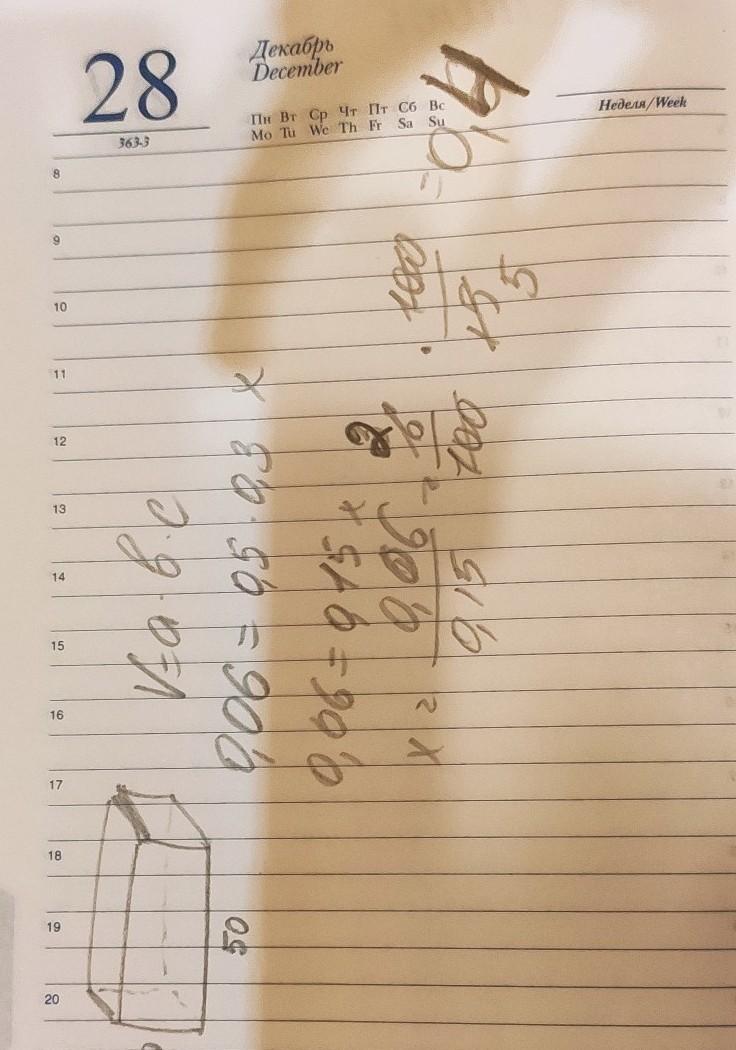 28
363-3
Декабрь
December
Пн Вт Ср Чт Пт Сб Вс
Mo Tu We Th Fr Sa Su
Неделя/Week
8
9
10
11
12
13
14
15
16
17
18
19
20
V=a·b·c
0,06 = 0,5·0,3 x
0,06 = 0,15 x
x = 0,06/0,15 = 6/100 · 100/15 = 0,4
2
5
50